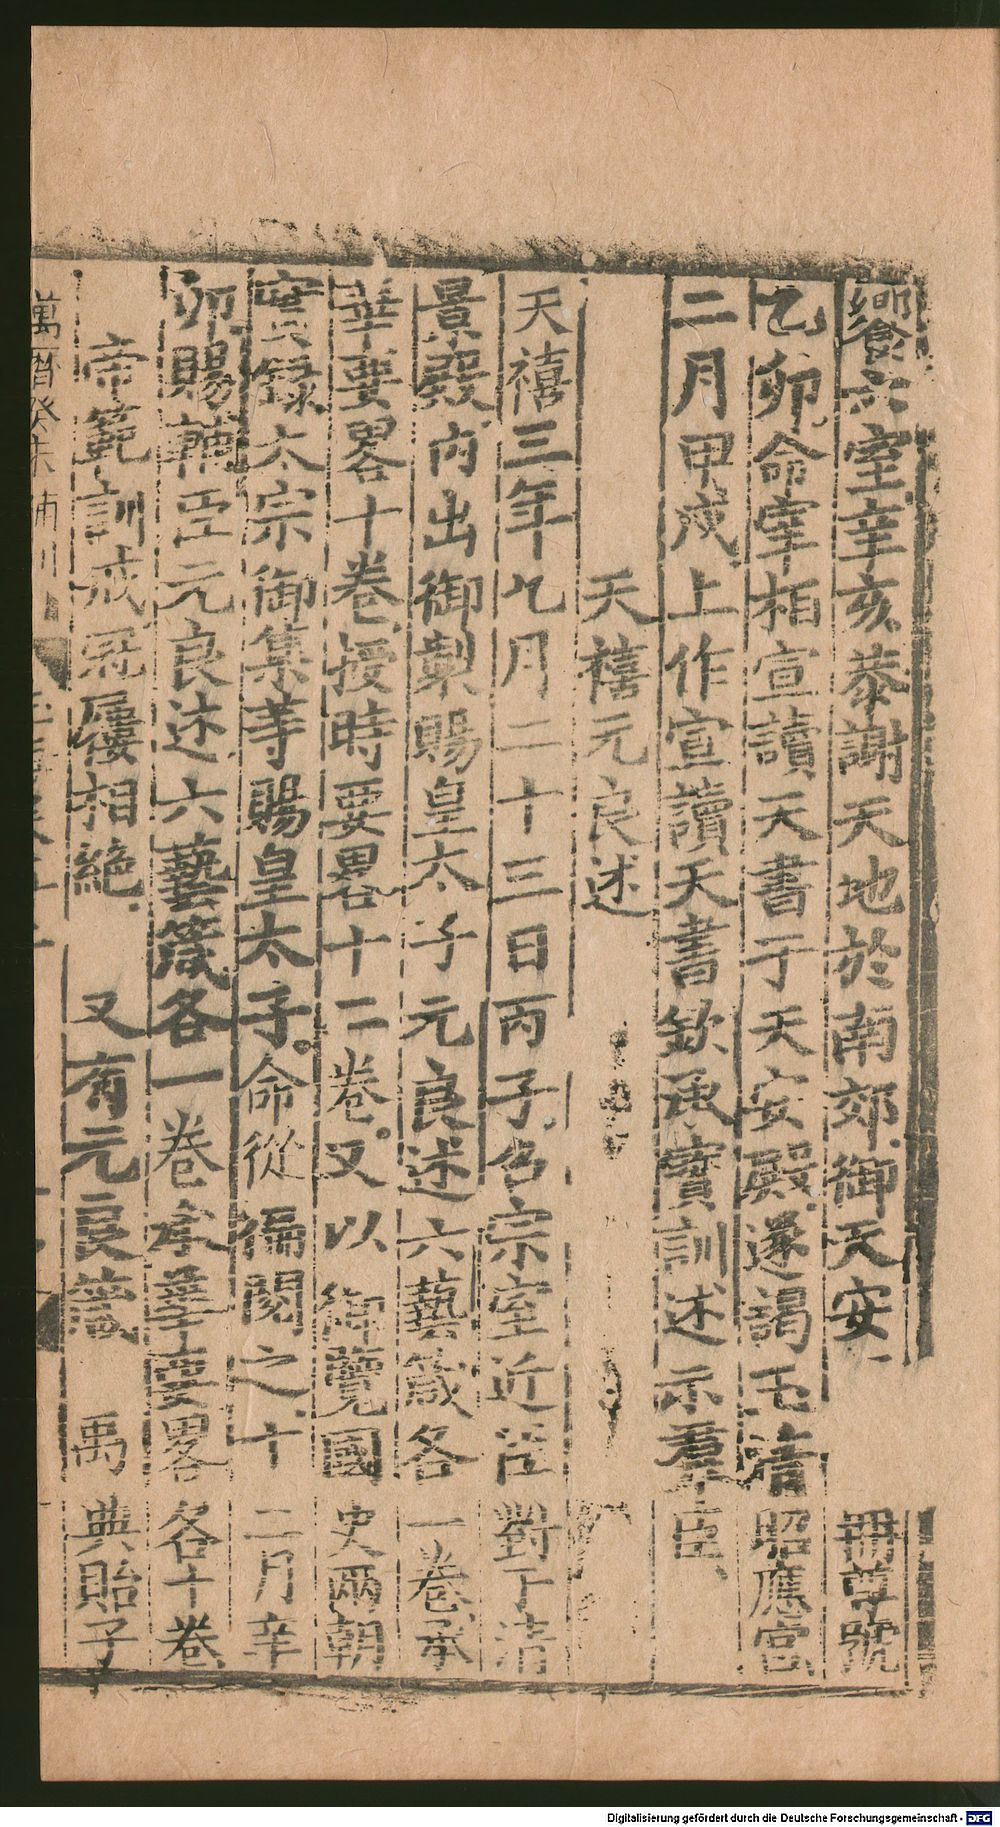 饗六室辛亥恭謝天地於南郊御天安 冊尊號
乙卯命宰相宣讀天書于天安殿遂謁玉清昭應宮
二月甲戌上作宣讀天書欽承寶訓述示羣臣
天禧元良述
天禧三年九月二十三日丙子召宗室近臣對于清
景殿内出御製賜皇太子元良述六藝箴各一卷承
華要畧十卷授時要畧十二卷又以御覽國史兩朝
實録太宗御集等賜皇太子命從徧閱之十二月辛
卯賜輔臣元良述六藝箴各一卷承華要畧各十卷
帝範訓戒冠屨相絶 又有元良箴 禹典貽子
萬曆癸未補刊
Digitalisierung gefördert durch die Deutsche Forschungsgemeinschaft - DFG